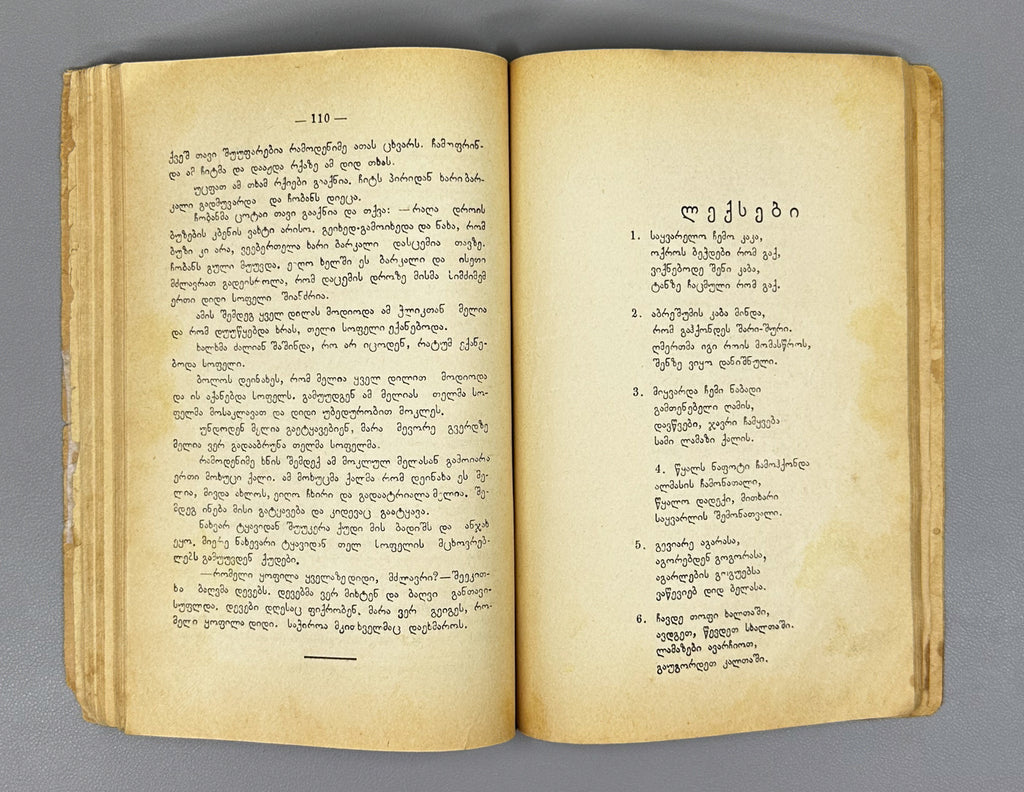 — 110 —
ქვეშ თავი შუუფარებია რამოდენიმე ათას ცხვარს. ჩამოფრინ-
და ამ ჩიტმა და დააჟდა რქაზე ამ დიდ თხას.
უცფათ ამ თხამ რქიები გააქნია. ჩიტს პირიდან ხარი ბარ-
კალი გადმუვარდა და ჩობანს დიეცა.
ჩობანმა ცოტაი თავი გააქნია და თქვა: — რაღა დროის
ბუზების კბენის ვახტი არისო. გეიხედ-გამოიხედა და ნახა, რომ
ბუზი კი არა, ვეებერთელა ხარი ბარკალი დასცემია თავზე.
ჩობანს გული მუუვდა. ეიღო ხელში ეს ბარკალი და ისეთი
მძლავრათ გადეისროლა, რომ დაცემის დროზე მისმა სიმძიმემ
ერთი დიდი სოფელი შიანძრია.
ამის შემდეგ ყველ დილას მოდიოდა ამ ჭლიკთან მელია
და რომ დუუწყებდა ხრას, თელი სოფელი ექანებოდა.
ხალხმა ძალიან შაშინდა, რო არ იცოდენ, რატუმ ექანე-
ბოდა სოფელი.
ბოლოს დეინახეს, რომ მელია ყველ დილით მოდიოდა
და ის აქანებდა სოფელს. გამუუდგენ ამ მელიას თელმა სო-
ფელმა მოსაკლავათ და დიდი უბედურობით მოკლეს.
უნდოდენ მელია გაეტყავებიენ, მარა მეორე გვერდზე
მელია ვერ გადააბრუნა თელმა სოფელმა.
რამოდენიმე ხნის შემდექ ამ მოკლულ მელასან გამოიარა
ერთი მოხუცი ქალი. ამ მოხუცმა ქალმა რომ დეინახა ეს მე-
ლია, მივდა ახლოს, ეიღო ჩხირი და გადაატრიალა მელია. შე-
მდეგ ინება მისი გატყავება და კიდევაც გაატყავა.
ნახვარ ტყავიდან შუუკერა ქუდი მის ბადიშს და ანჯახ
ეყო. მიერე ნახევარი ტყავიდან თელ სოფელის მცხოვრებ-
ლებს გამუუვდენ ქუდები.
—რომელი ყოფილა ყველაზე დიდი, მძლავრი?—შეეკით-
ხა ბაღვმა დევებს. დევებმა ვერ მიხტენ და ბაღვი განთავი-
სუფლდა. დევები დღესაც ფიქრობენ, მარა ვერ გეიგეს, რო-
მელი ყოფილა დიდი. საჭიროა მკითხველმაც დაეხმაროს.
ლექსები
1. საყვარელო ჩემო კაკა,
ოქროს ბეჭდები რომ გაქ,
ვიქნებოდე შენი კაბა,
ტანზე ჩაცმული რომ გაქ.
2. აბრეშუმის კაბა მინდა,
რომ გაჰქონდეს შარი-შური.
ღმერთმა იგი როის მომასწროს,
შენზე ვიყო დანიშნული.
3. მიყვარდა ჩემი ნაბადი
გამთენებელი ღამის,
დავწვები, ჯავრი ჩამყვება
სამი ლამაზი ქალის.
4. წყალს ნაფოტი ჩამოჰქონდა
ალმასის ჩამონათალი,
წყალო დადექი, მითხარი
საყვარლის შემონათვალი.
5. გევიარე აგარასა,
აგორებდენ გოგორასა,
აგარლების გოგუებსა
ვაწევიებ დიდ ბელასა.
6. ჩავდე თოფი ხალთაში,
ავდგეთ, წევდეთ სხალთაში.
ლამაზები ავარჩიოთ,
გაუგორდეთ კალთაში.